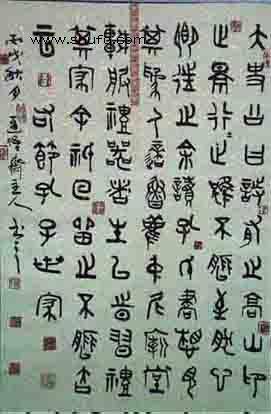 太史公曰詩有之高山仰
止景行行止雖不能至然心
鄉往之余讀孔氏書想見
其為人適魯觀仲尼廟堂
車服禮器諸生以時習禮
其家余祗回留之不能去
云 右節孔子世家
丙戌秋月 齋主人